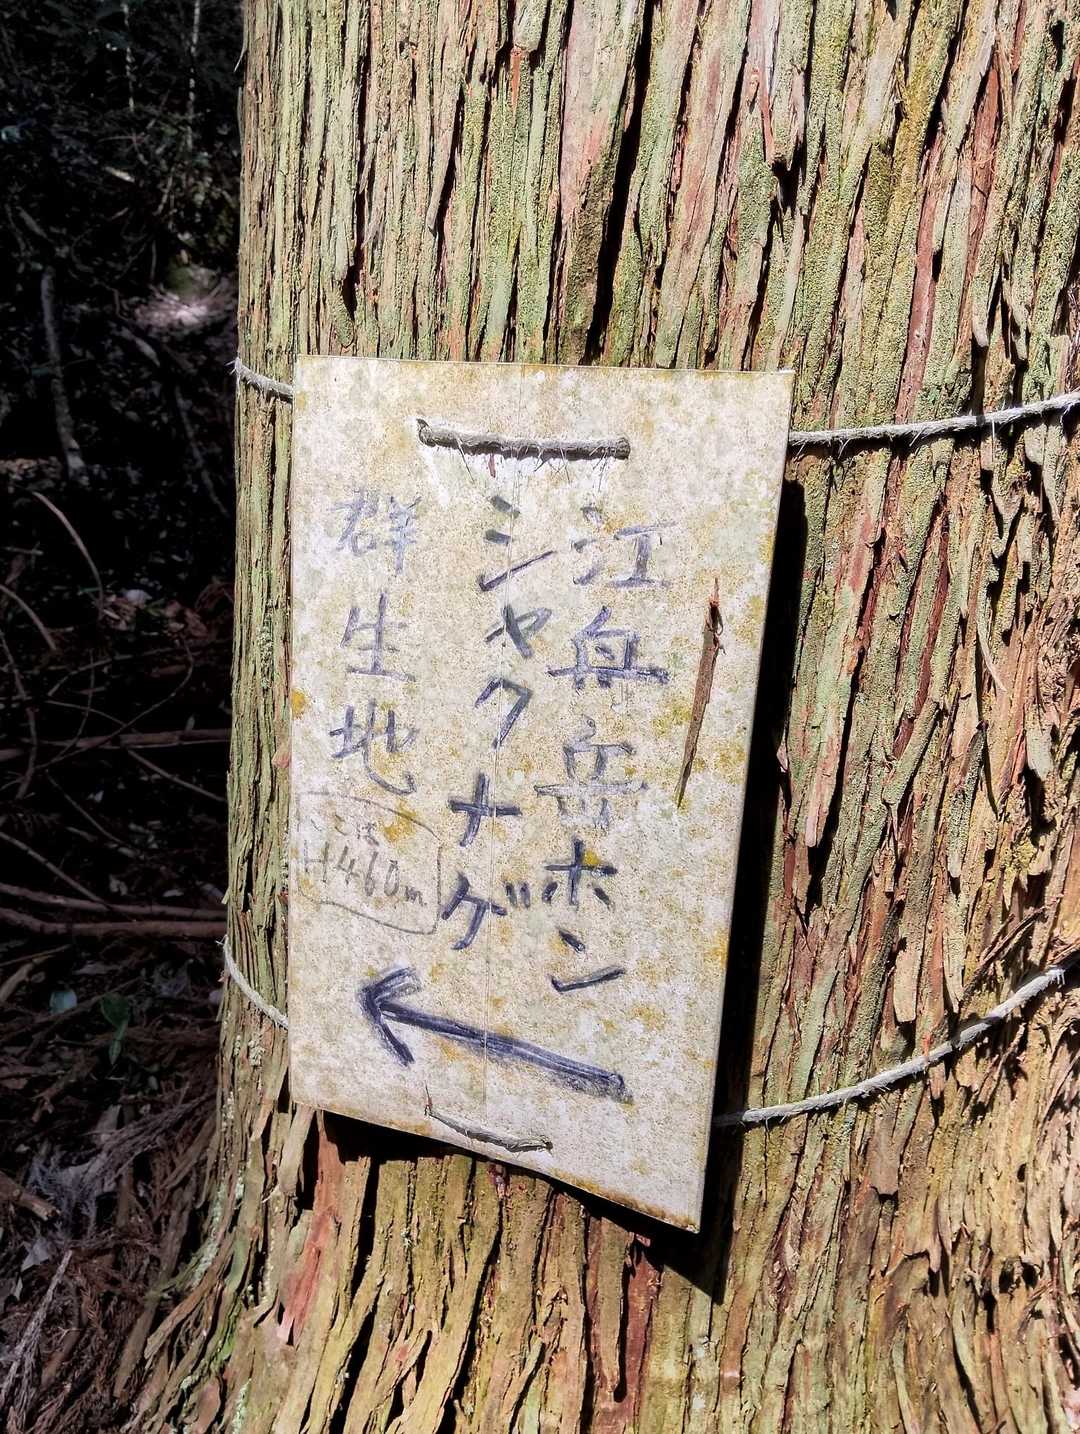 江舟岳ホン
シャクナゲ
群生地
ここは
H460m